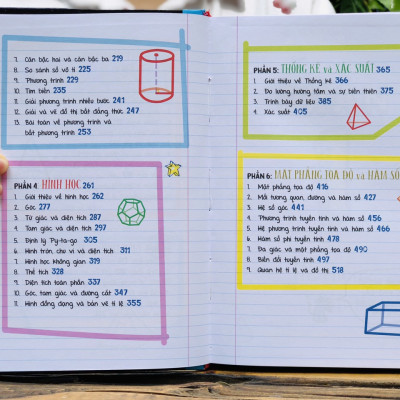 7. Căn bậc hai và căn bậc ba 219
8. So sánh số vô tỉ 225
9. Phương trình 229
10. Tìm biến 235
11. Giải phương trình nhiều bước 241
12. Giải và vẽ đồ thị bất đẳng thức 247
13. Bài toán về phương trình và
bất phương trình 253
PHẦN 4: HÌNH HỌC 261
1. Giới thiệu về hình học 262
2. Góc 277
3. Tứ giác và diện tích 287
4. Tam giác và diện tích 297
5. Định lý Py-ta-go 305
6. Hình tròn, chu vi và diện tích 311
7. Hình học không gian 319
8. Thể tích 328
9. Diện tích toàn phần 337
10. Góc, tam giác và đường cắt 347
11. Hình đồng dạng và bản vẽ tỉ lệ 355
PHẦN 5: THỐNG KÊ và XÁC SUẤT 365
1. Giới thiệu về Thống kê 366
2. Đo lường hướng tâm và sự biến thiên 375
3. Trình bày dữ liệu 385
4. Xác suất 405
PHẦN 6: MẶT PHẲNG TỌA ĐỘ và HÀM SỐ
1. Mặt phẳng tọa độ 416
2. Mối tương quan, đường và hàm số 427
3. Hệ số góc 441
4. Phương trình tuyến tính và hàm số 456
5. Hệ phương trình tuyến tính và hàm số 466
6. Hàm số phi tuyến tính 478
7. Đa giác và mặt phẳng tọa độ 490
8. Biến đổi tuyến tính 497
9. Quan hệ tỉ lệ và đồ thị 518